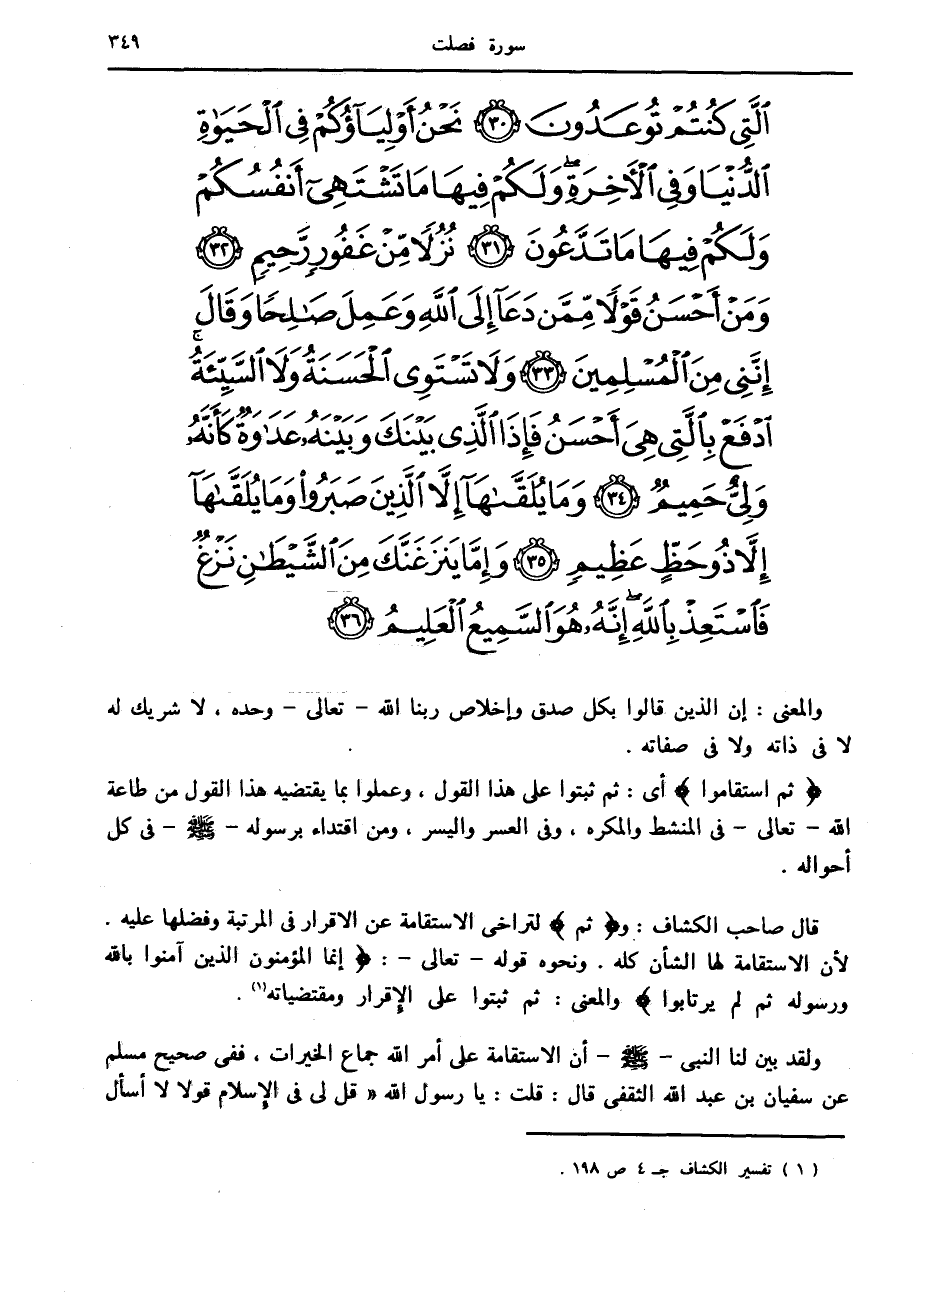 سورة فصلت ٣٤٩
ٱلَّتِى كُنتُمْ تُوعَدُونَ ﴿٣٠﴾ نَحْنُ أَوْلِيَآؤُكُمْ فِى ٱلْحَيَوٰةِ
ٱلدُّنْيَا وَفِى ٱلْأَخِرَةِ ۖ وَلَكُمْ فِيهَا مَا تَشْتَهِىٓ أَنفُسُكُمْ
وَلَكُمْ فِيهَا مَا تَدَّعُونَ ﴿٣١﴾ نُزُلًا مِّنْ غَفُورٍ رَّحِيمٍ ﴿٣٢﴾
وَمَنْ أَحْسَنُ قَوْلًا مِّمَّن دَعَآ إِلَى ٱللَّهِ وَعَمِلَ صَٰلِحًا وَقَالَ
إِنَّنِى مِنَ ٱلْمُسْلِمِينَ ﴿٣٣﴾ وَلَا تَسْتَوِى ٱلْحَسَنَةُ وَلَا ٱلسَّيِّئَةُ ۚ
ٱدْفَعْ بِٱلَّتِى هِىَ أَحْسَنُ فَإِذَا ٱلَّذِى بَيْنَكَ وَبَيْنَهُۥ عَدَٰوَةٌ كَأَنَّهُۥ
وَلِىٌّ حَمِيمٌ ﴿٣٤﴾ وَمَا يُلَقَّىٰهَآ إِلَّا ٱلَّذِينَ صَبَرُوا۟ وَمَا يُلَقَّىٰهَآ
إِلَّا ذُو حَظٍّ عَظِيمٍ ﴿٣٥﴾ وَإِمَّا يَنزَغَنَّكَ مِنَ ٱلشَّيْطَٰنِ نَزْغٌ
فَٱسْتَعِذْ بِٱللَّهِ ۖ إِنَّهُۥ هُوَ ٱلسَّمِيعُ ٱلْعَلِيمُ ﴿٣٦﴾
والمعنى : إن الذين قالوا بكل صدق وإخلاص ربنا الله - تعالى - وحده ، لا شريك له
لا فى ذاته ولا فى صفاته .
﴿ ثم استقاموا ﴾ أى : ثم ثبتوا على هذا القول ، وعملوا بما يقتضيه هذا القول من طاعة
الله - تعالى - فى المنشط والمكره ، وفى العسر واليسر ، ومن اقتداء برسوله - ﷺ - فى كل
أحواله .
قال صاحب الكشاف : و﴿ ثم ﴾ لتراخى الاستقامة عن الاقرار فى المرتبة وفضلها عليه .
لأن الاستقامة لها الشأن كله . ونحوه قوله - تعالى - : ﴿ إنما المؤمنون الذين آمنوا بالله
ورسوله ثم لم يرتابوا ﴾ والمعنى : ثم ثبتوا على الإقرار ومقتضياته(١) .
ولقد بين لنا النبى - ﷺ - أن الاستقامة على أمر الله جماع الخيرات ، ففى صحيح مسلم
عن سفيان بن عبد الله الثقفى قال : قلت : يا رسول الله « قل لى فى الإسلام قولا لا أسأل
( ١ ) تفسير الكشاف جـ ٤ ص ١٩٨ .